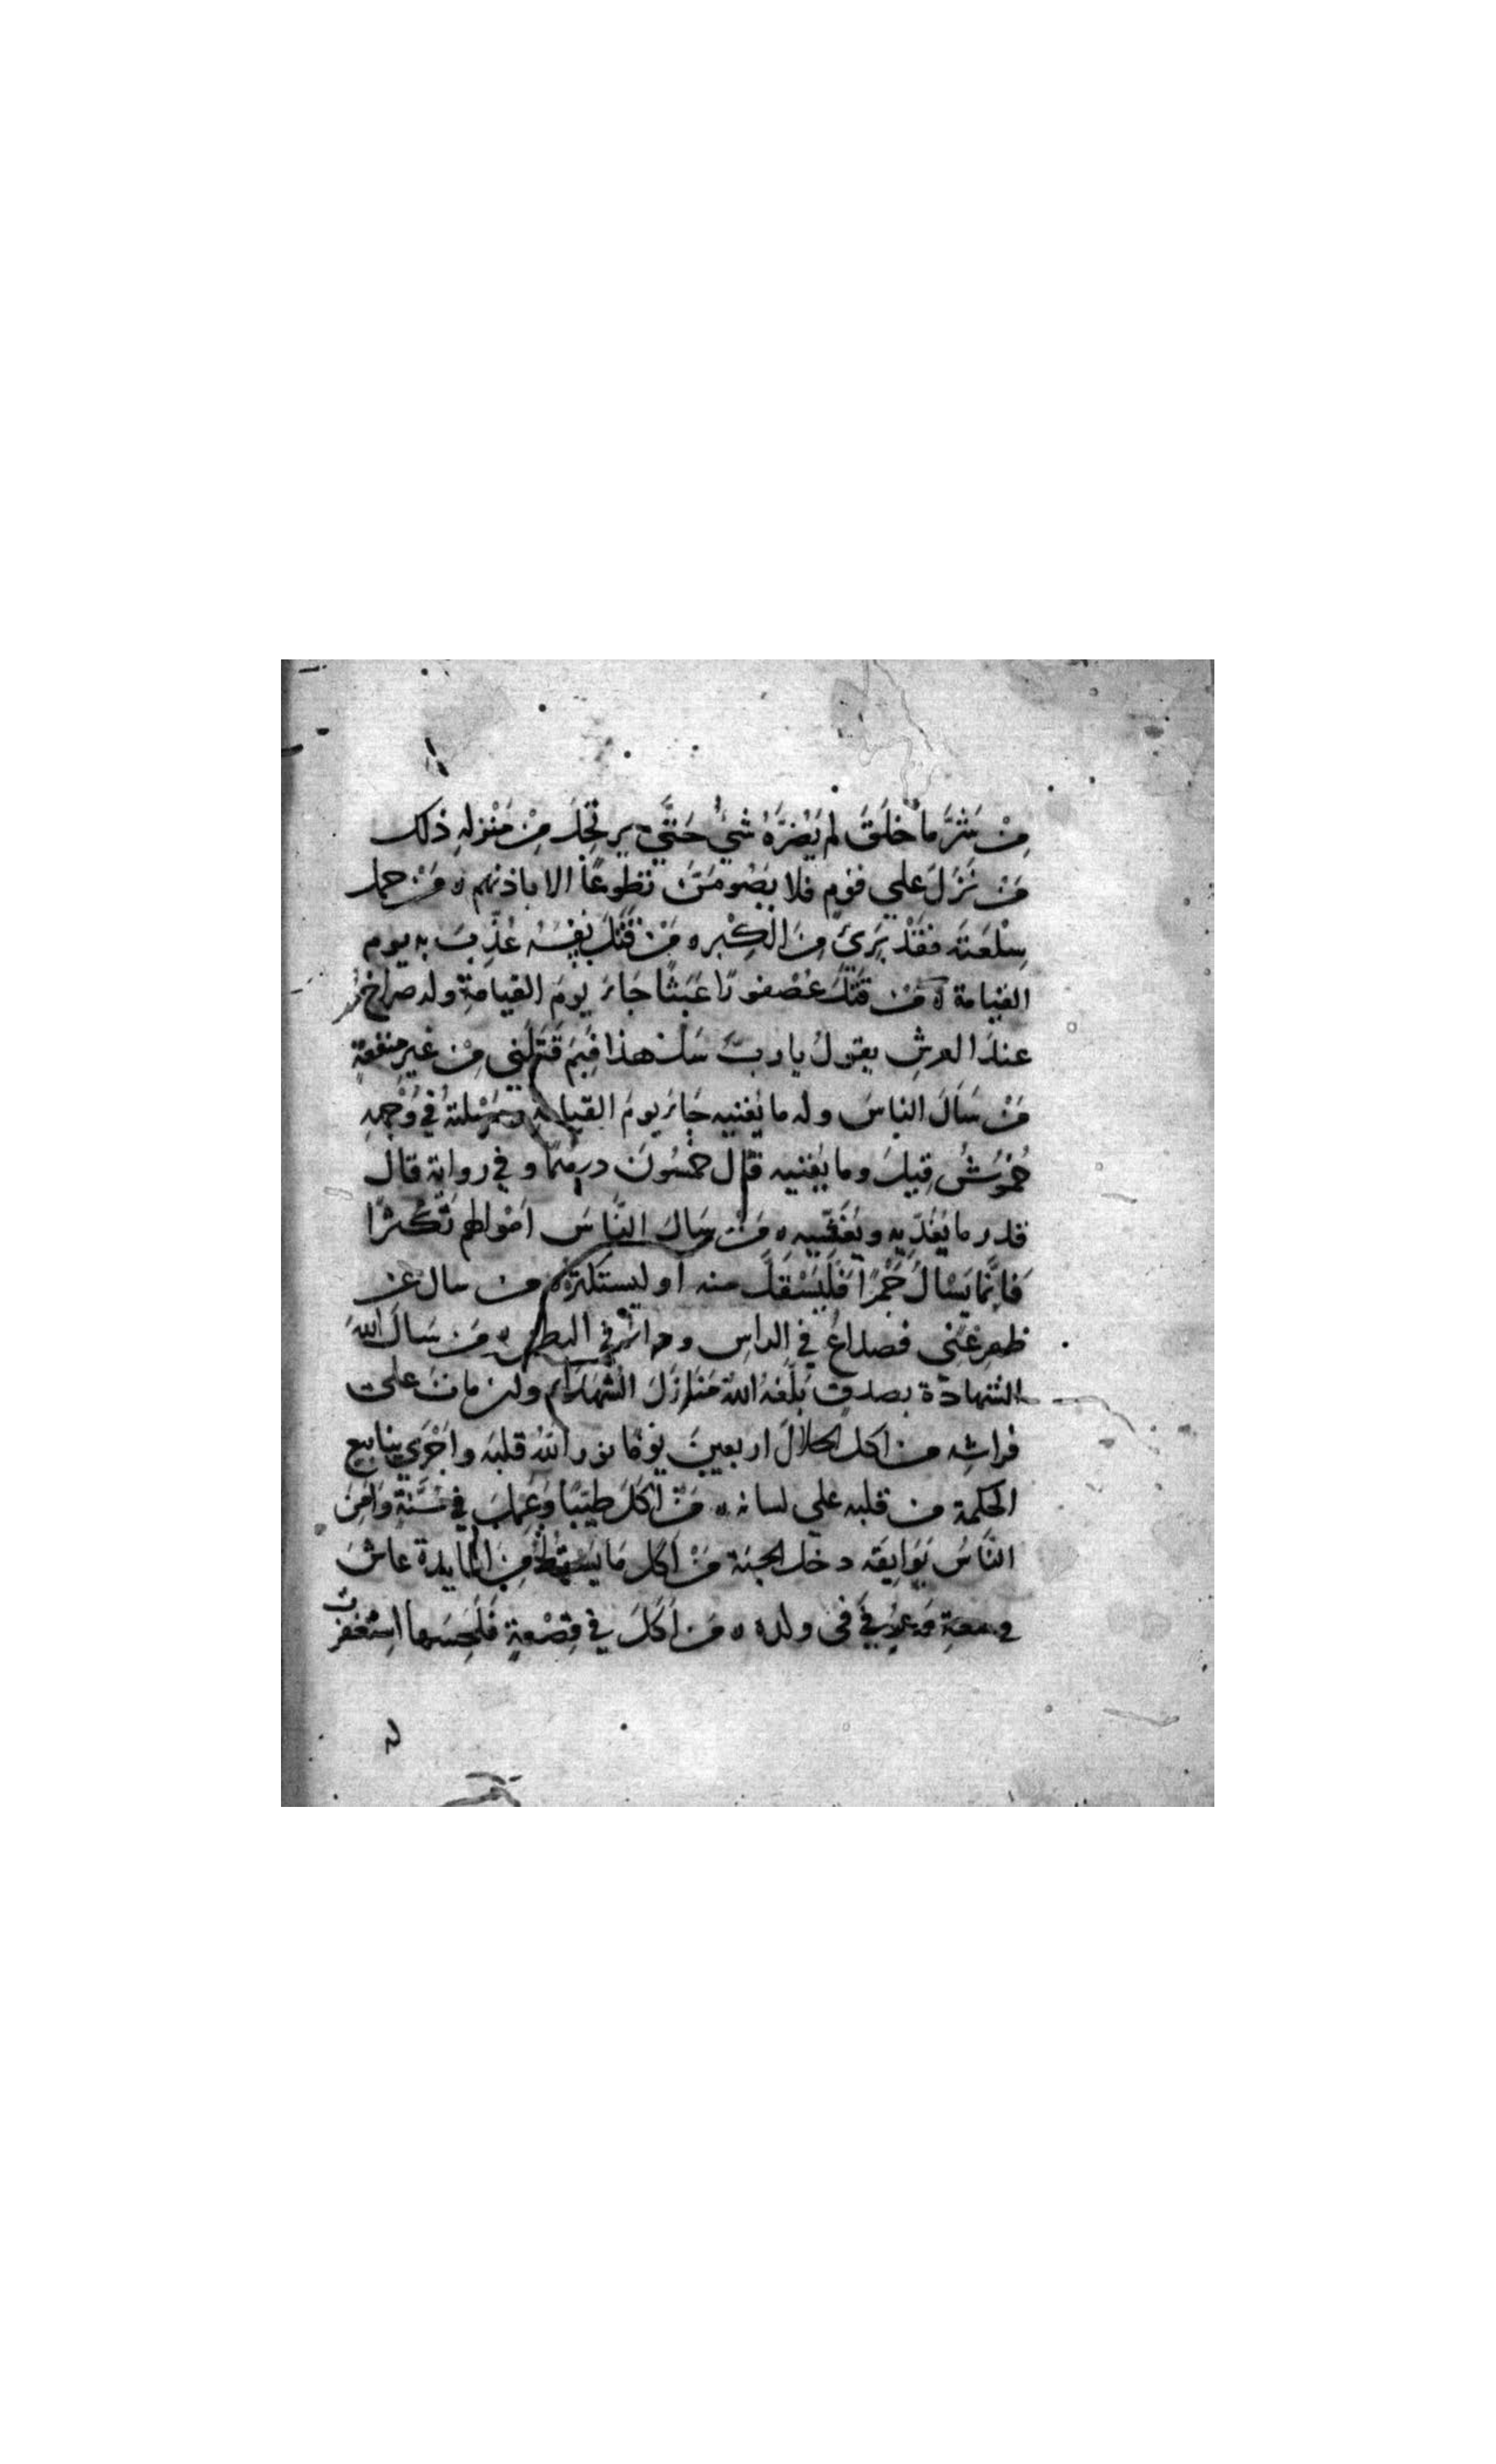 مِنْ شَرِّ مَا خَلَقَ لم يَضُرَّهُ شيْءٌ حَتَّي يرتحِلَ مِنْ مَنْزلِهِ ذلك
مَنْ نَزَلَ علي قومٍ فلا يَصُومَنَّ تطوعًا الا باذنهم ه مَنْ حمل
سِلْعَتَه فقَدْ بَرِئَ مِنَ الكِبْرِ ه مَنْ قَتَلَ نفسَهُ عُذِّبَ به يوم
القيامة ه مَنْ قَتَلَ عُصْفورًا عَبَثًا جَاءَ يومَ القيامةِ وله صراخٌ
عندَ العرشِ يقولُ يا ربِّ سَلْ هذا فِيمَ قَتَلَني مِنْ غيرِ منفعةٍ
مَنْ سَأَلَ الناسَ وله ما يُغنيه جَاءَ يومَ القيامة ومَسْئلتُهُ في وَجْهِهِ
خُمُوْشٌ قِيلَ وما يُغنيه قال خمسُونَ درهمًا وفي رواية قال
قدر ما يُغَدّيه ويُعَشّيه ه مَنْ سَالَ النَّاسَ امْوالهم تَكثُّرًا
فَانّما يَسْالُ جَمْرًا فَلْيَسْتَقِلَّ منه او ليستكثرْ ه من سال عن
ظهرِ غنًي فصداعٌ في الراسِ وداءٌ في البطن ه مَن سَالَ اللهَ
الشهادَة بصدقٍ بَلَّغهُ اللهُ مَنَازلَ الشُّهَدَاءِ وان ماتَ علي
فراشِه من اكل الحلالَ اربعينَ يومًا نور اللهُ قلبَه واَجْرَي ينابيع
الحكمة من قلبه علي لسانه ه مَنْ اكَلَ طيّبًا وَعَمِلَ في سُنَّةٍ واَمِنَ
النَّاسُ بَوَايِقَه دخل الجنة مَنْ اكل مَا يَسْقُطُ مِنَ المايدة عاشَ
في سعةٍ وَعُوفِيَ في ولده ه مَن اَكَلَ في قِصْعةٍ فَلَحِسَها اسْتَغْفرت
له